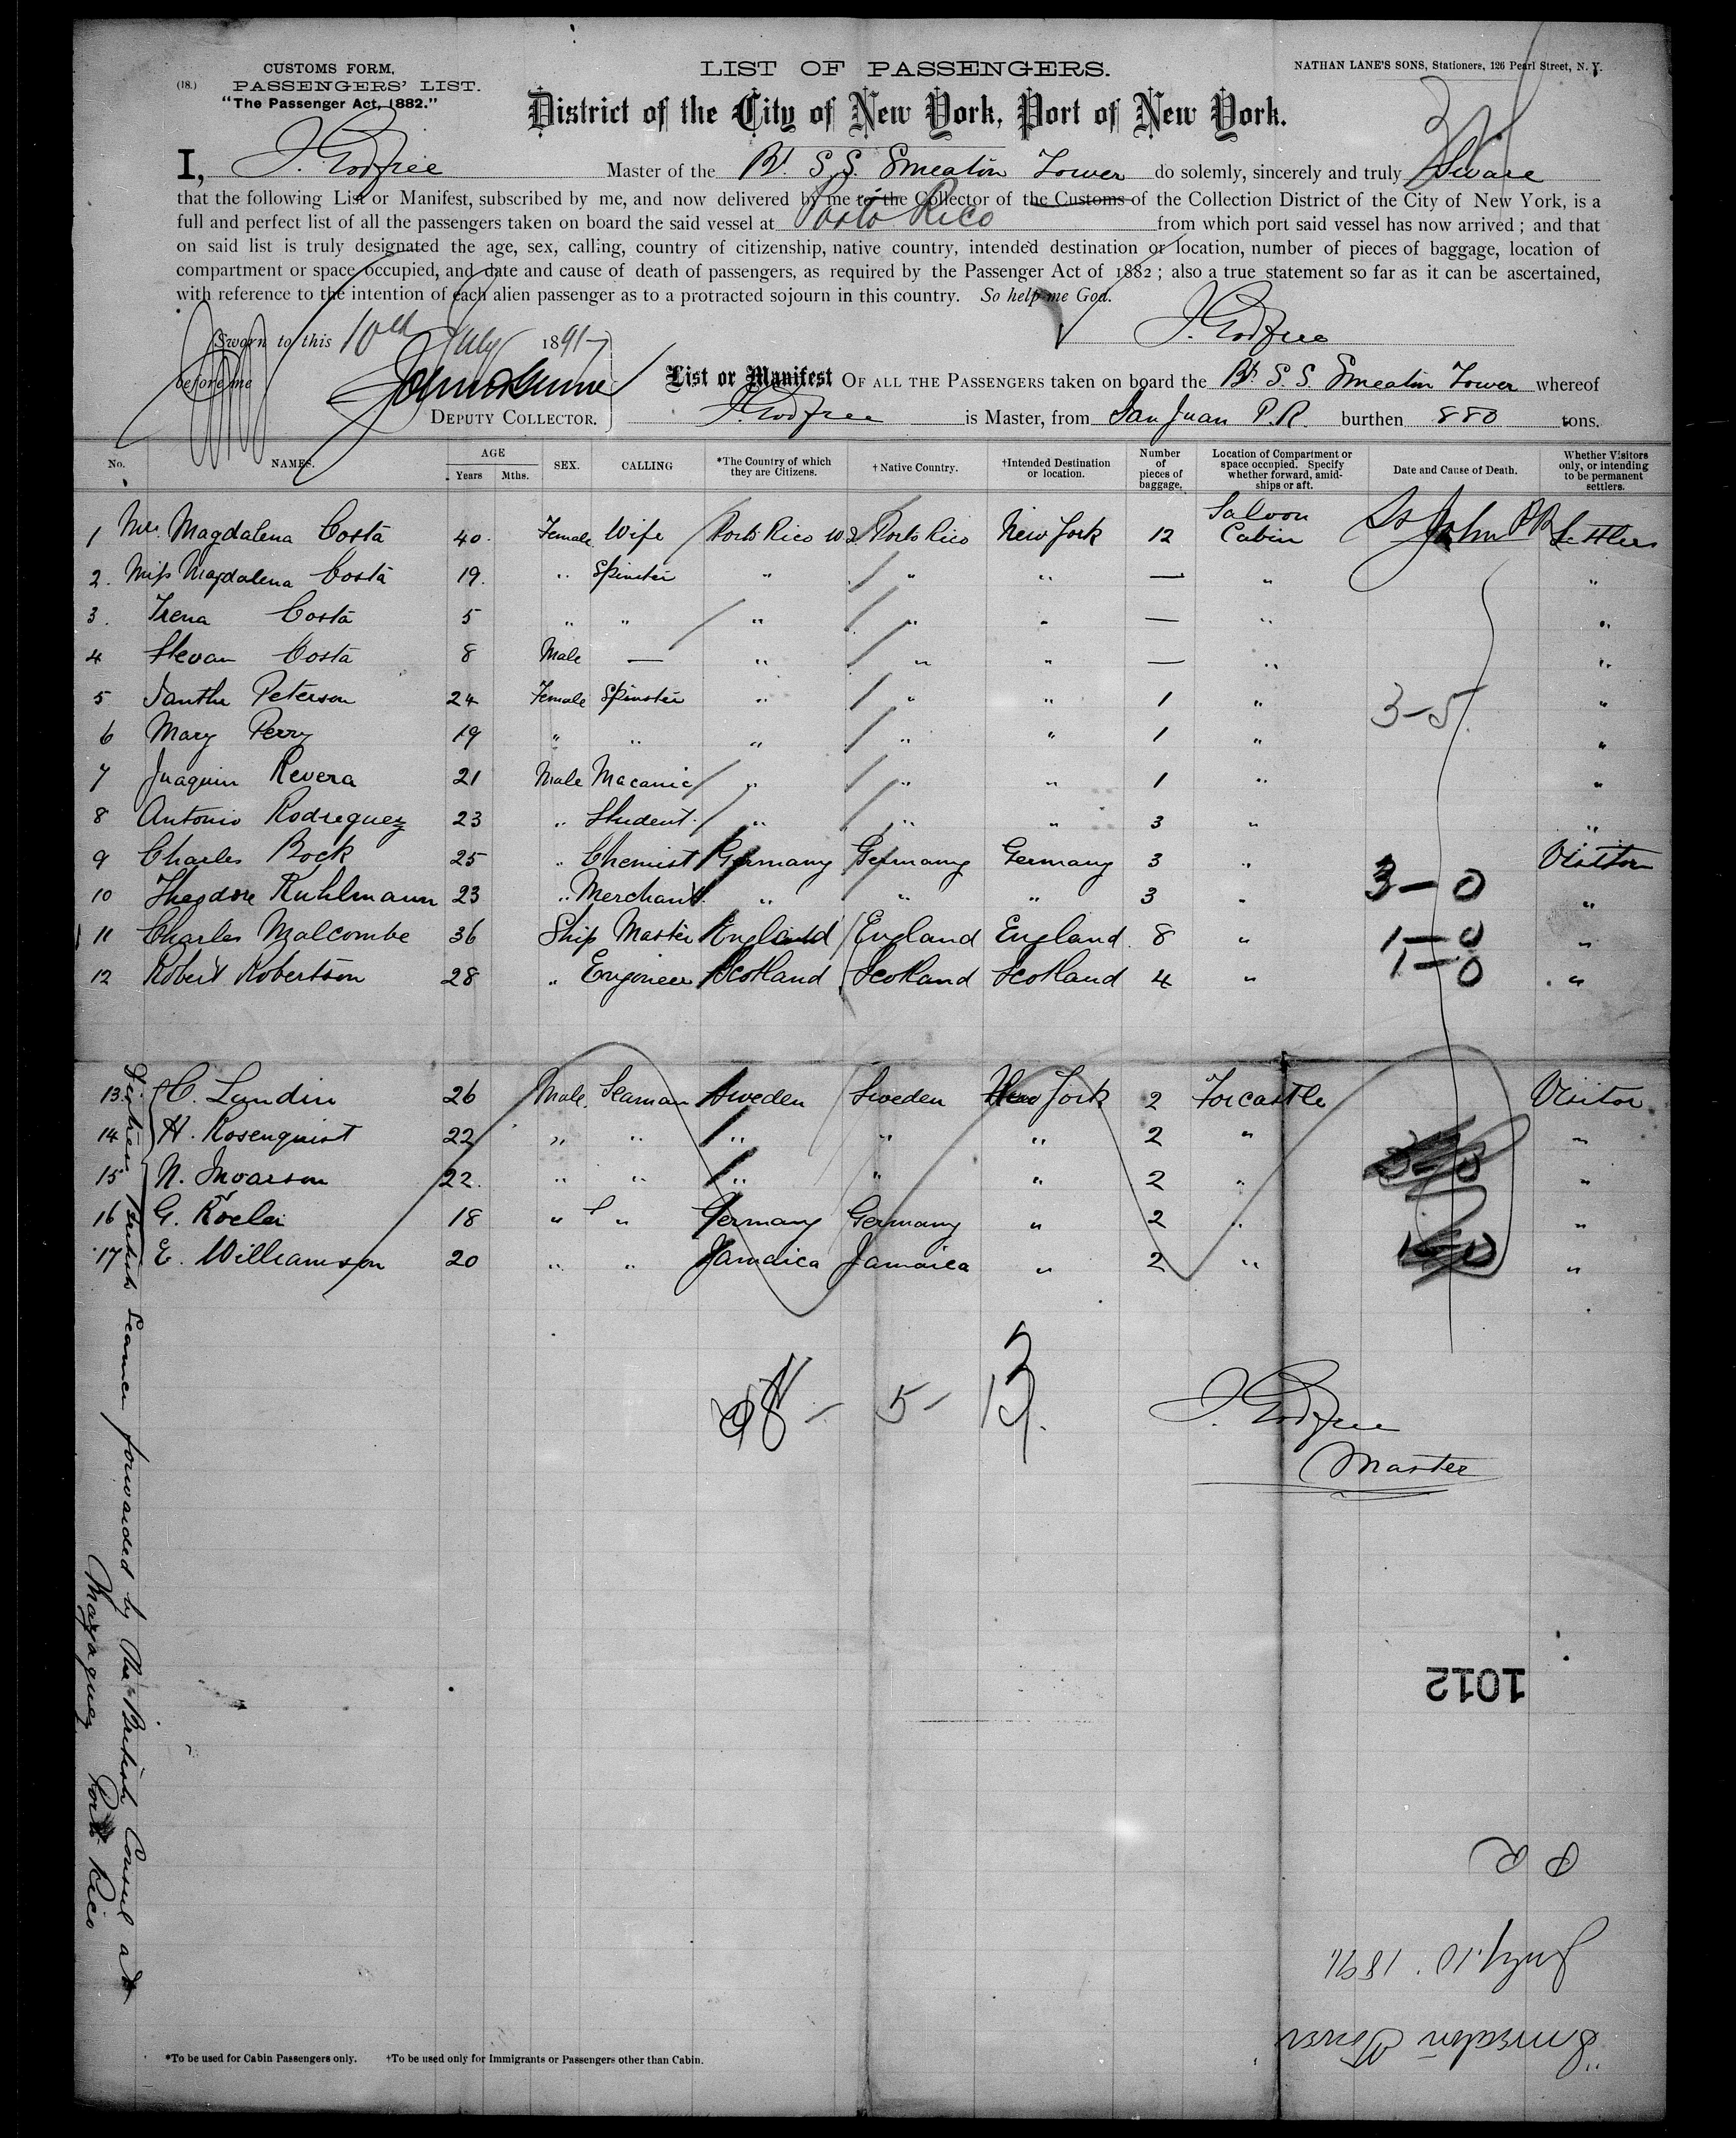 CUSTOMS FORM,
(18.) PASSENGERS' LIST.
"The Passenger Act, 1882."
LIST OF PASSENGERS.
NATHAN LANE'S SONS, Stationers, 126 Pearl Street, N. Y.
District of the City of New York, Port of New York.
I, J. Godfree Master of the Bt. S.S. Smeaton Tower do solemnly, sincerely and truly Sware
that the following List or Manifest, subscribed by me, and now delivered by me to the Collector of the Customs of the Collection District of the City of New York, is a
full and perfect list of all the passengers taken on board the said vessel at Porto Rico from which port said vessel has now arrived ; and that
on said list is truly designated the age, sex, calling, country of citizenship, native country, intended destination or location, number of pieces of baggage, location of
compartment or space occupied, and date and cause of death of passengers, as required by the Passenger Act of 1882 ; also a true statement so far as it can be ascertained,
with reference to the intention of each alien passenger as to a protracted sojourn in this country. So help me God.
J. Godfree
Sworn to this 10th July 1891
before me
DEPUTY COLLECTOR.
List or Manifest OF ALL THE PASSENGERS taken on board the Bt. S.S. Smeaton Tower whereof
J. Godfree is Master, from San Juan P.R. burthen 880 tons.
No. NAMES. AGE Years Mths. SEX. CALLING *The Country of which they are Citizens. †Native Country. †Intended Destination or location. Number of pieces of baggage. Location of Compartment or space occupied. Specify whether forward, amidships or aft. Date and Cause of Death. Whether Visitors only, or intending to be permanent settlers.
1 Mrs. Magdalena Costa 40 Female Wife Porto Rico W I Porto Rico New York 12 Saloon Cabin St John PR Settlers
2. Miss Magdalena Costa 19. " Spinster " " " — " "
3. Irena Costa 5 " " " " " — " "
4 Stevan Costa 8 Male — " " " — " "
5 Ianthe Peterson 24 Female Spinster " " " 1 " 3-5 "
6 Mary Perry 19 " " " " " 1 " "
7 Juaquin Revera 21 Male Macanic " " " 1 " "
8 Antonio Rodreguez 23 " Student. " " " 3 " "
9 Charles Bock 25 " Chemist Germany Germany Germany 3 " Visitor
10 Theodore Kuhlmann 23 " Merchant " " " 3 " 3-0 "
11 Charles Malcombe 36 Ship Master England England England 8 " 1-0 "
12 Robert Robertson 28 " Engineer Scotland Scotland Scotland 4 " 1-0 "
13 C. Lundin 26 Male Seaman Sweden Sweden New York 2 Forcastle Visitor
14 H. Rosenquist 22 " " " " " 2 " "
15 N. Ivoarson 22. " " " " " 2 " "
16 G. Koeler 18 " " Germany Germany " 2 " "
17 E. Williamson 20 " " Jamaica Jamaica " 2 " "
5 - 13
J. Godfree
Master
British Seamen forwarded by the British Consul at
Mayaguez Porto Rico
1012
P R
July 10. 1891
Smeaton Tower
*To be used for Cabin Passengers only. †To be used only for Immigrants or Passengers other than Cabin.